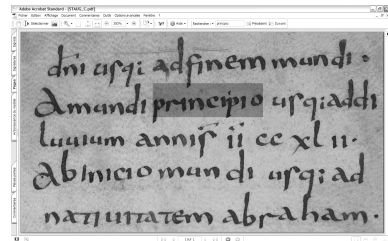 Adobe Acrobat Standard - [STAUG_E.pdf]
Fichier Edition Affichage Document Commentaires Outils Options avancées Fenêtre ?
Sélectionner 200% Aide Rechercher : principio Précédent Suivant
dni usq; adfinem mundi .
Amundi principio usq; addi
luuium annis ii cc xl ii.
Abinicio mundi usq; ad
natiuitatem abraham.
1 sur 1